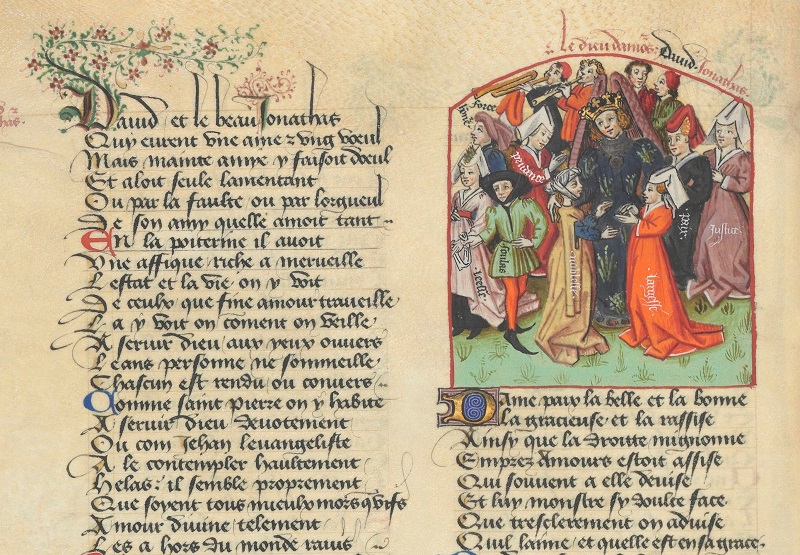 Dauid et le beau Jonathas
Qui eurent vne ame z vng voeul
Mais mainte amye y faisoit doeul
Et aloit seule lamentant
Ou par la faulte ou par lorgueul
De son amy quelle amoit tant
En la poiterine il auoit
Vne affique riche a merueille
Lestat et la vie on y voit
De ceulx que fine amour traueille
La y voit on coment on veille
A seruir dieu aux yeux ouuers
Leans personne ne sommeille
Chascun est rendu ou conuers
Comme saint pierre on y habite
A seruir dieu deuotement
Ou com Jehan leuangeliste
A le contempler haultement
Helas il semble proprement
Que soyent tous mieulx mors q vifs
Amour diuine telement
Les a hors du monde rauis
Le dieu damors Dauid Jonathas
force
prudence
soulas
leesse
largesse
paix
Justice
Dame paix la belle et la bonne
La gracieuse et la rassise
Ainsy que la droitte mignonne
Emprez Amours estoit assise
Qui souuent a elle deuise
Et luy monstre sy doulce face
Que tresclerement on aduise
Quil laime et quelle est en sa grace